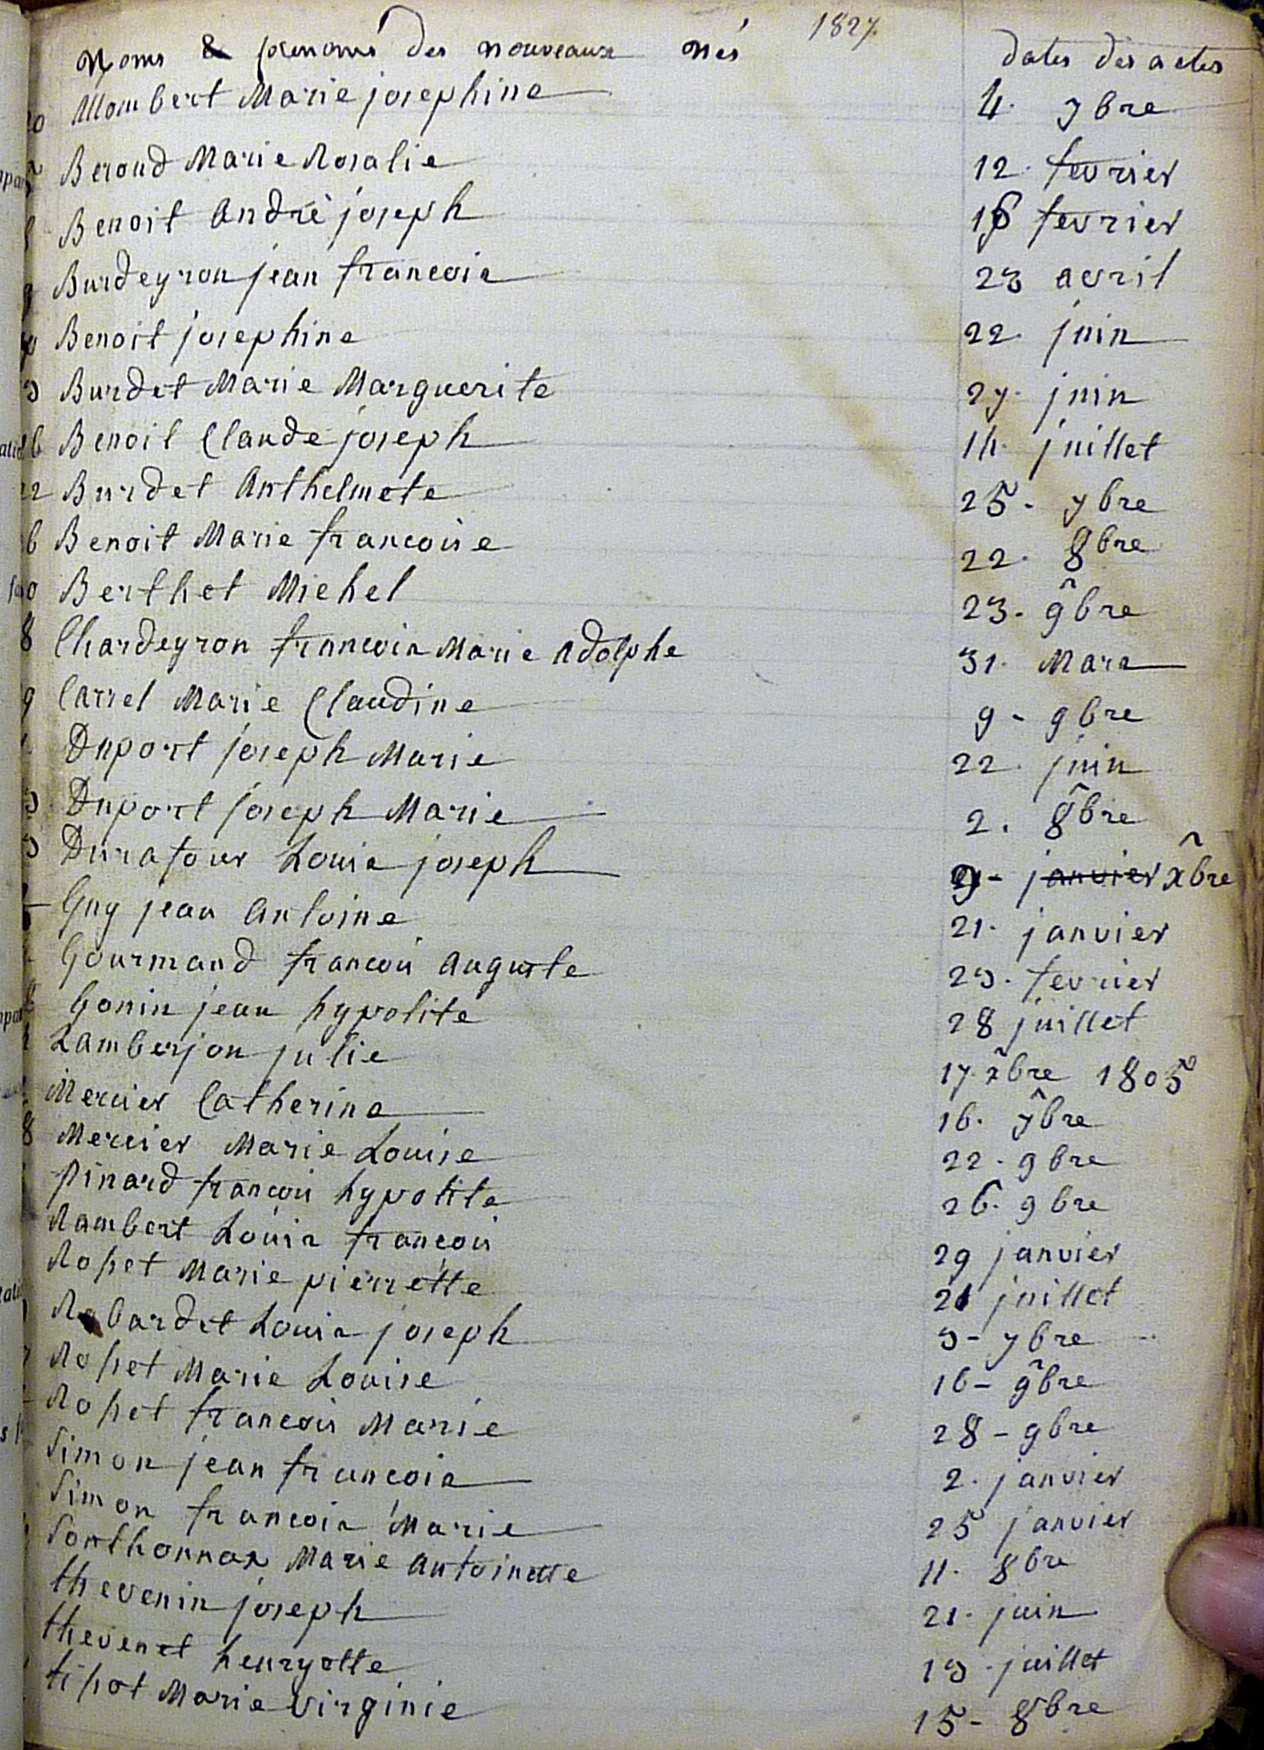 1827.
Noms & prenoms des nouveaux nés dates des actes
Allombert Marie josephine 4. 7bre
Beroud Marie Rosalie 12. fevrier
Benoit André joseph 16 fevrier
Burdeyron jean francois 23 avril
Benoit josephine 22. juin
Burdet Marie Marguerite 27. juin
Benoit Claude joseph 14. juillet
Burdet Anthelmete 25. 7bre
Benoit Marie francoise 22. 8bre
Berthet Michel 23. 9bre
Chardeyron francois Marie Adolphe 31. Mars
Carrel Marie Claudine 9 - 9bre
Duport joseph Marie 22. juin
Duport joseph Marie 2. 8bre
Durafour Louis joseph 9 - janvier xbre
Guy jean Antoine 21. janvier
Gourmand francois Auguste 23. fevrier
Gonin jean hypolite 28 juillet
Lamberjon julie 17 xbre 1805
Mercier Catherine 16. 7bre
Mercier Marie Louise 22. 9bre
pinard francois hypolite 26. 9bre
Rambert Louis francois 29 janvier
Rosset Marie pierrette 21 juillet
Robardet Louis joseph 3 - 7bre
Rosset Marie Louise 16 - 9bre
Rosset francois Marie 28 - 9bre
Simon jean francois 2. janvier
Simon francois Marie 25 janvier
Sonthonnax Marie Antoinette 11. 8bre
thevenin joseph 21. juin
thevenet henryette 13 - juillet
tissot Marie virginie 15 - 8bre